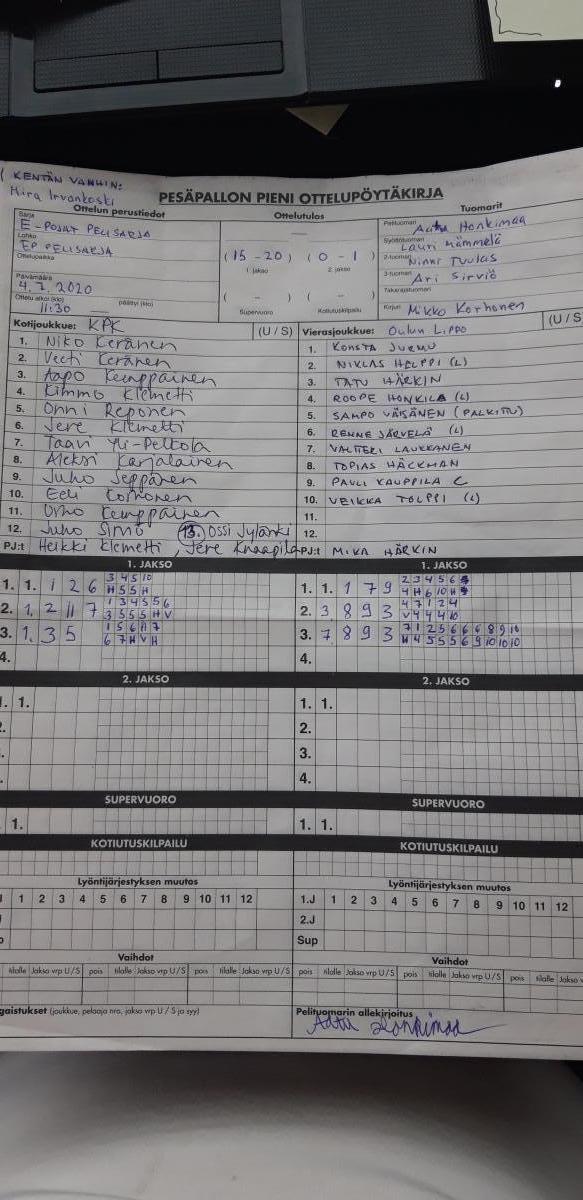 KENTÄN VANHIN:
PESÄPALLON PIENI OTTELUPÖYTÄKIRJA
Ottelun perustiedot
Ottelutulos
Tuomarit
Sarja
E-POJAT PELISARJA
Lohko
EP PELISARJA
Ottelupaikka
Päivämäärä
4.7.2020
Ottelu alkoi (klo) 11:30 päättyi (klo)
(15 - 20) (0 - 1)
1. jakso 2. jakso
( - ) ( - )
Supervuoro Kotiutuskilpailu
Pelituomari Honkimaa
Syöttötuomari Lauri Hämmelä
2-tuomari Ninni Tuulas
3-tuomari Ari Sirviö
Takarajatuomari
Kirjuri Mikko Korhonen
Kotijoukkue: KPK (U / S)
1. Niko Keränen
2. Veeti Keränen
3. Aapo Kemppainen
4. Kimmo Klemetti
5. Onni Reponen
6. Jere Klemetti
7. Taavi Yli-Peltola
8. Aleksi Karjalainen
9. Juho Seppänen
10. Eeli Korhonen
11. Urho Kemppainen
12. Juho Simo 13. Ossi Jylänki
PJ:t Heikki Klemetti, Jere Knaapila
Vierasjoukkue: Oulun Lippo (U / S)
1. KONSTA JURMU
2. NIKLAS HELPPI (L)
3. TATU HÄRKIN
4. ROOPE HONKILA (L)
5. SAMPO VÄISÄNEN (PALKITTU)
6. RENNE JÄRVELÄ (L)
7. VALTTERI LAUKKANEN
8. TOPIAS HÄCKMAN
9. PAULI KAUPPILA C
10. VEIKKA TOLPPI (L)
11.
12.
PJ:t MIKA HÄRKIN
1. JAKSO
1. 1. 1 2 6 3 4 5 10
H 5 5 H
2. 1, 2 11 7 1 3 4 5 5 6
3 5 5 5 H V
3. 1, 3 5 1 5 6 11 7
6 7 H V H
4.
1. JAKSO
1. 1. 1 7 9 2 3 4 5 6
4 H 6 10 H
2. 3 8 9 3 4 7 1 2 4
V 4 4 4 10
3. 7 8 9 3 7 1 2 5 6 6 6 8 9 10
H 4 5 5 5 6 9 10 10 10
4.
2. JAKSO
1. 1.
2. JAKSO
1. 1.
2.
3.
4.
SUPERVUORO
1.
SUPERVUORO
1. 1.
KOTIUTUSKILPAILU
KOTIUTUSKILPAILU
Lyöntijärjestyksen muutos
1 2 3 4 5 6 7 8 9 10 11 12
Lyöntijärjestyksen muutos
1.J 1 2 3 4 5 6 7 8 9 10 11 12
2.J
Sup
Vaihdot
tilalle Jakso vrp U / S pois tilalle Jakso vrp U / S pois tilalle Jakso vrp U / S
Vaihdot
pois tilalle Jakso vrp U / S pois tilalle Jakso vrp U / S pois tilalle Jakso
gaistukset (joukkue, pelaaja nro, jakso vrp U / S ja syy)
Pelituomarin allekirjoitus